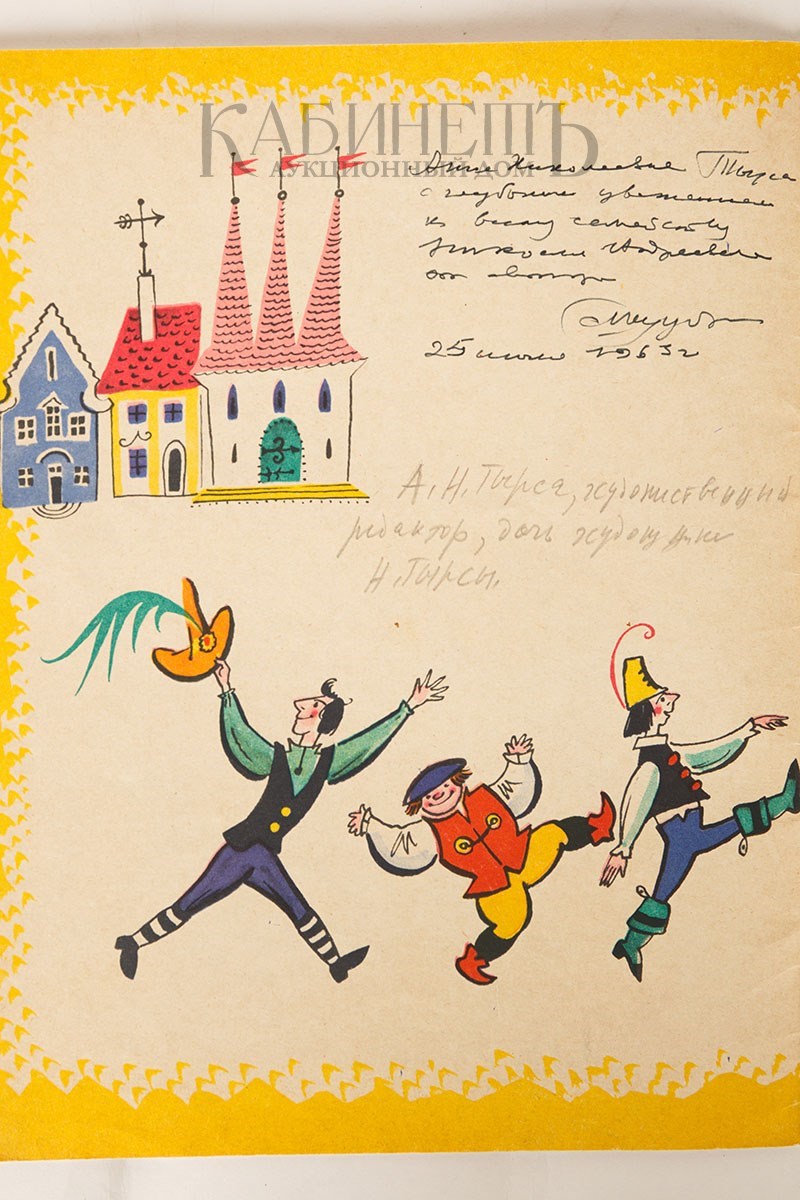 КАБИНЕТЪ
АУКЦИОННЫЙ ДОМ
Анне Николаевне Тырса
с глубоким уважением
к всему семейству
Николая Андреевича
от автора
25 июня 1963 г
А. Н. Тырса, художественный
редактор, дочь художника
Н. Тырсы.